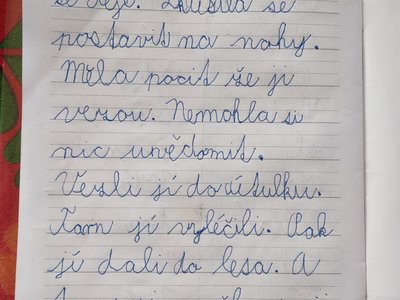 se děje. Zkusila se
postavit na nohy.
Měla pocit že ji
vezou. Nemohla si
nic uvědomit.
Vezli jí do útulku.
Tam jí vyléčili. Pak
jí dali do lesa. A